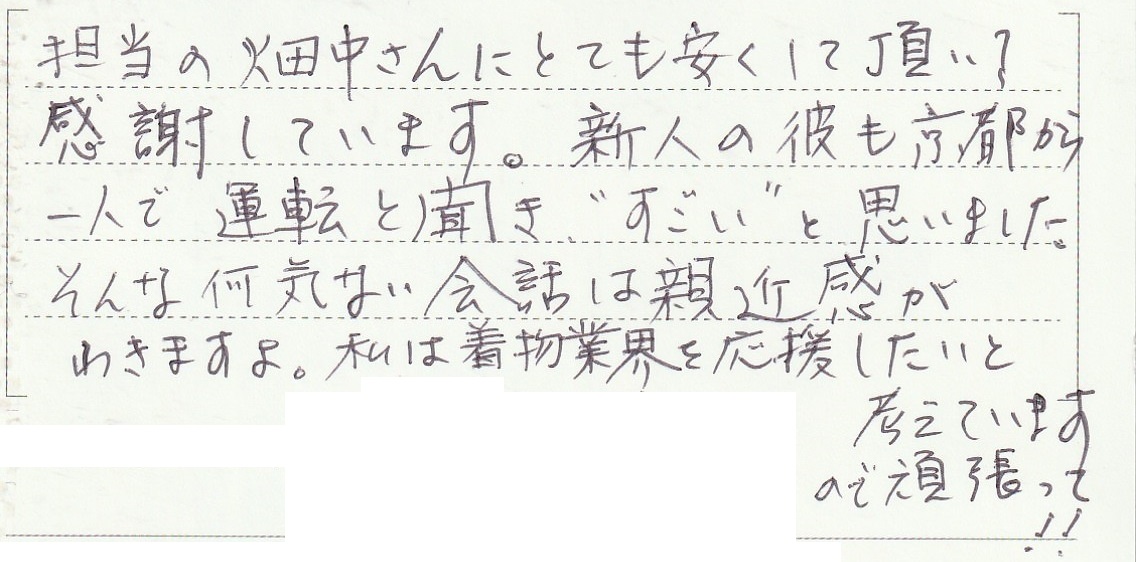 担当の畑中さんにとても安くして頂いて
感謝しています。新人の彼も京都から
一人で運転と聞き、“すごい”と思いました。
そんな何気ない会話は親近感が
わきますよ。私は着物業界を応援したいと
考えています
ので頑張って
!!